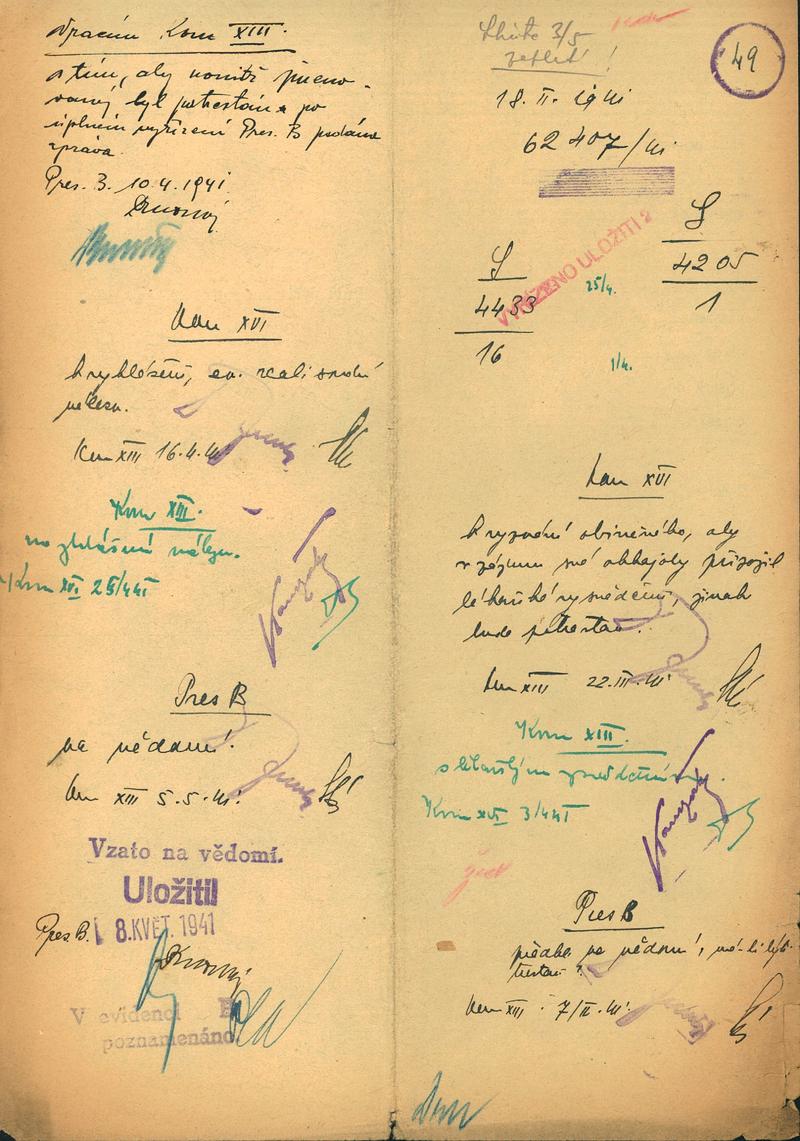 Vracím Kom XIII.
s tím, aby
byl potrestán a po
úplném vyřízení Pres. B podána
zpráva.
Pres. B. 10.4.1941
Kom XVI
k vyhlášení, ev. realisování
nálezu.
Kom XIII 16.4.41
Kom XIII.
po zhlášení nálezu.
Kom XVI 25/4 41
Pres B
na vědomí.
Kom XIII 5.5.41
Vzato na vědomí.
Uložiti
Pres. B. 8. KVĚT. 1941
V evidenci B
poznamenáno.
49
Lhůta 3/5
18. II. 1941
62 407/41
VYŘÍZENO ULOŽITI
S
4205
1
S
4433
16
25/4.
1/4.
Kom XVI
k vyzvání obviněného, aby
v zájmu své obhajoby přiložil
lékařské vysvědčení, jinak
bude potrestán.
Kom XIII 22.III.41
Kom XIII.
s lékařským vysvědčením.
Kom XVI 3/4 41
žid
Pres B
předkl. na vědomí, má-li býti
trestán?
Kom XIII 7/II.41